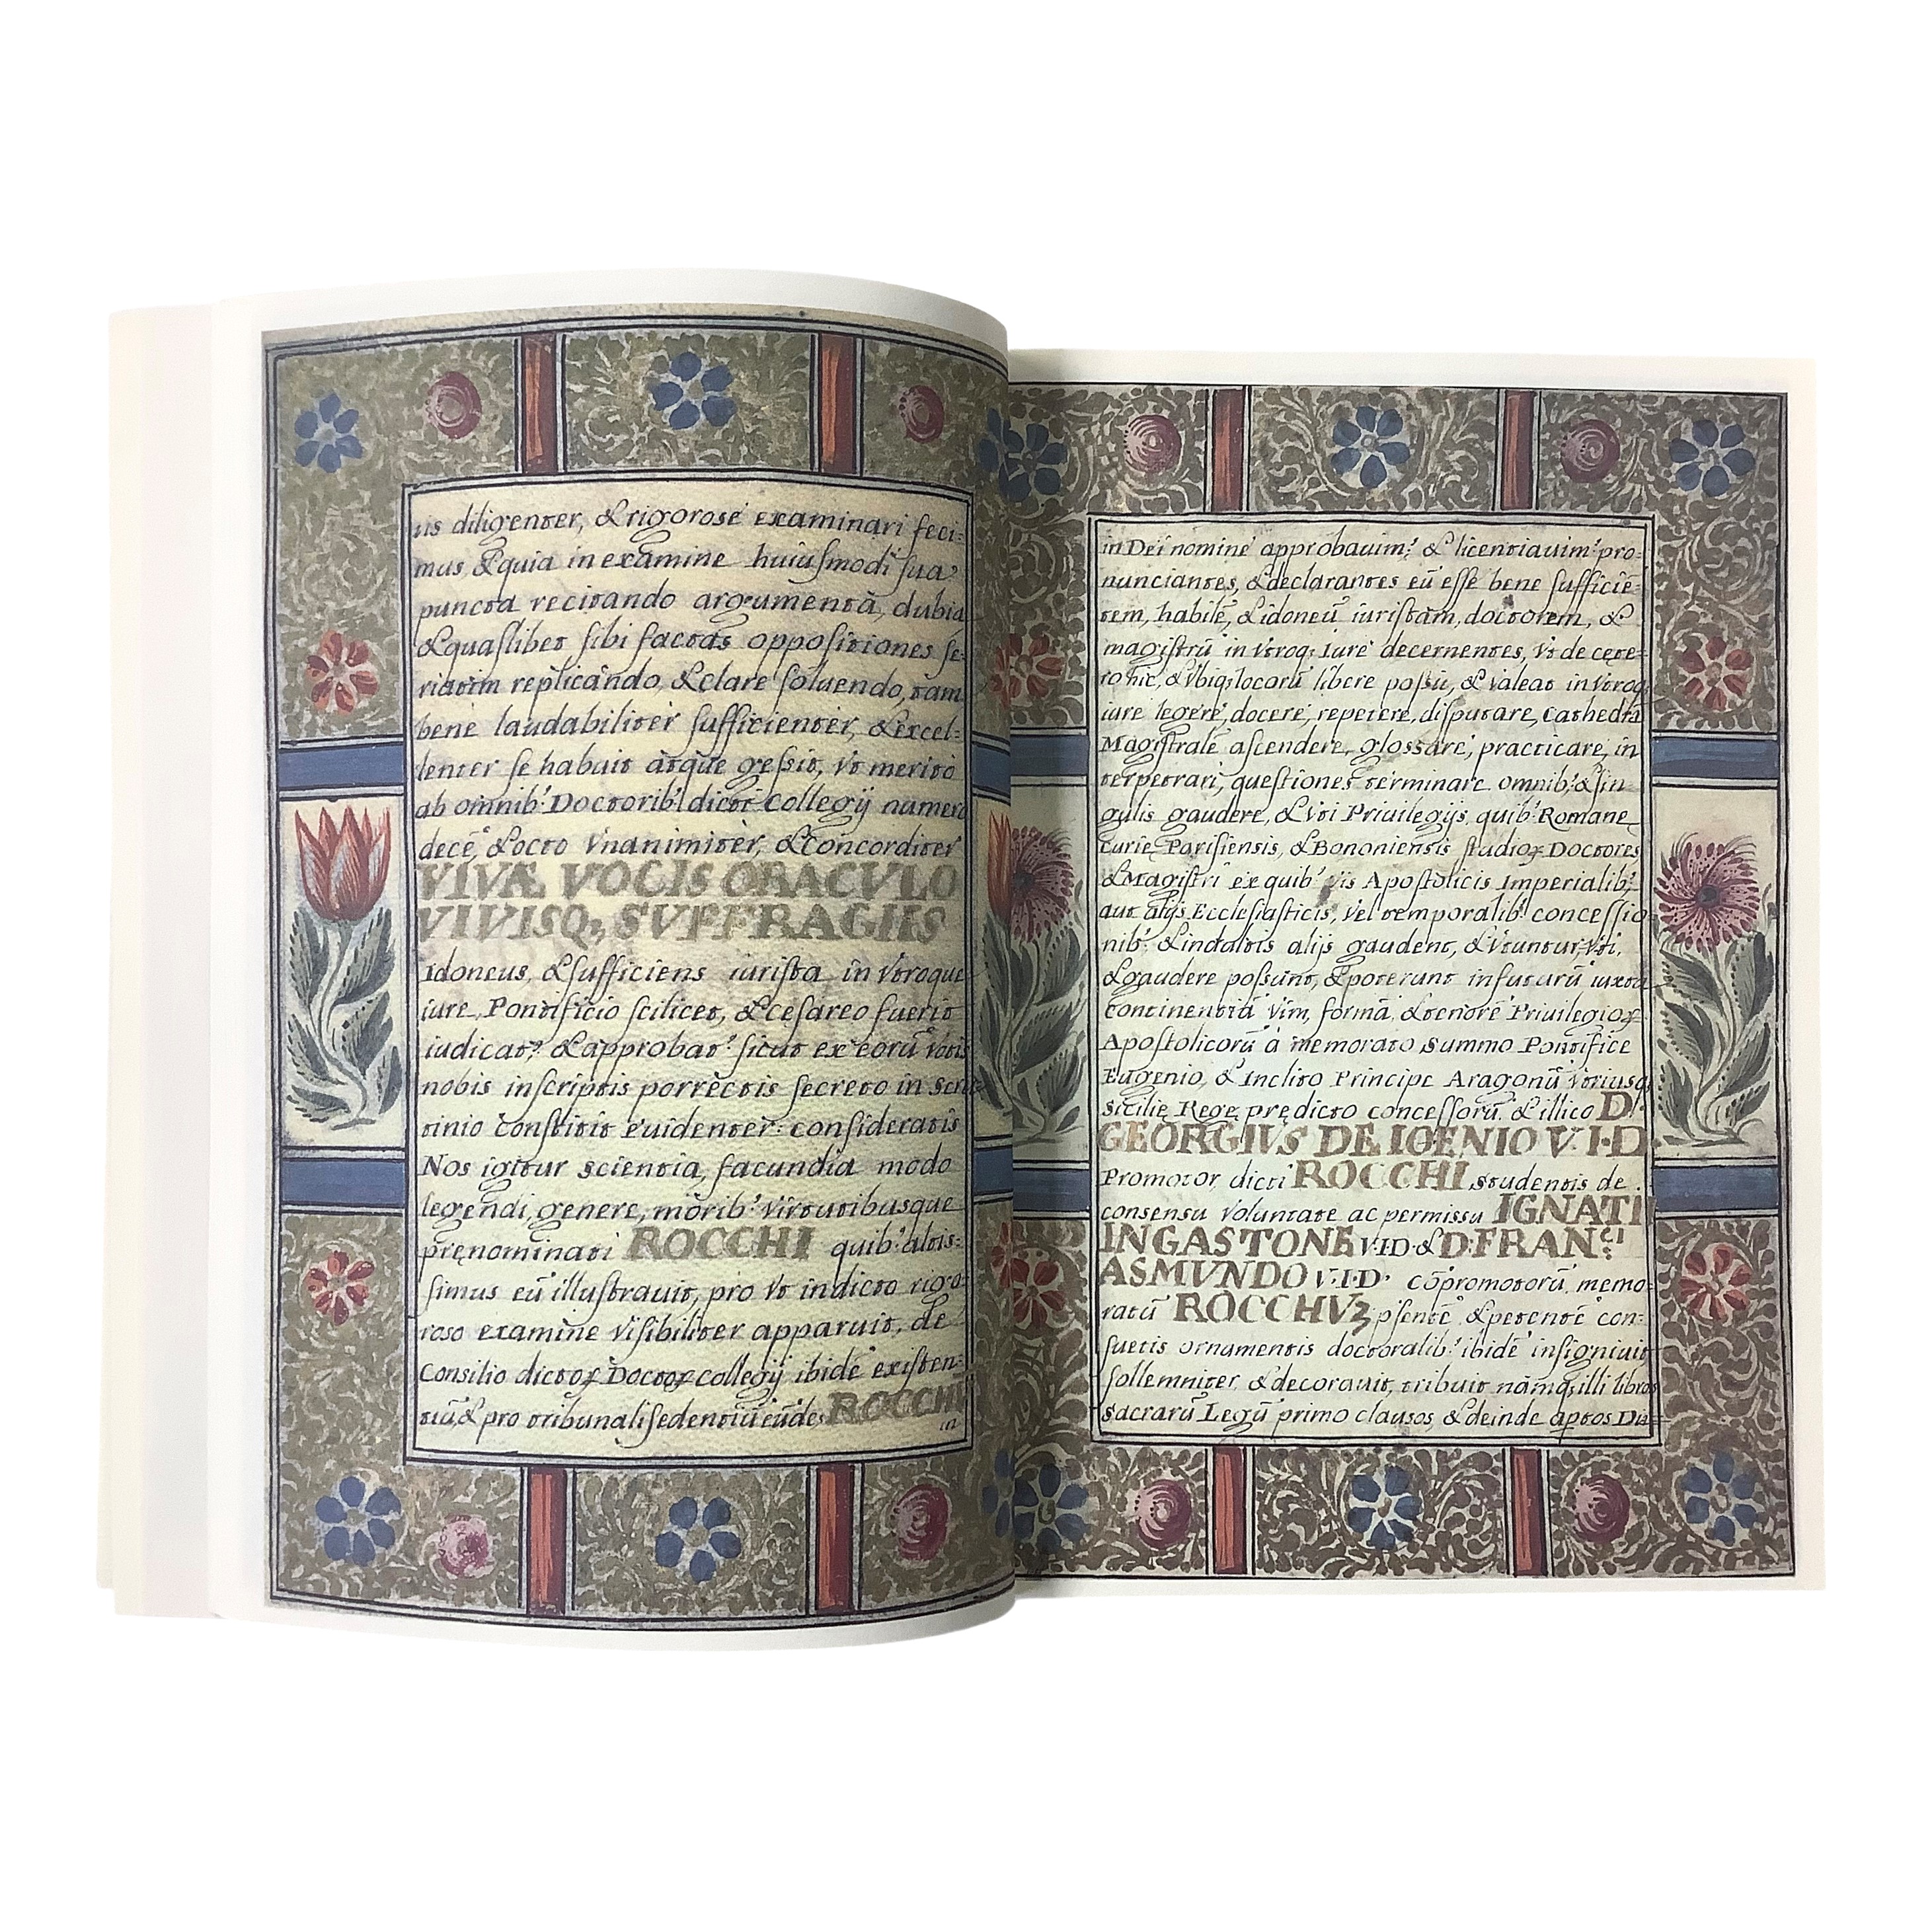 iis diligenter, & rigorose examinari feci=
mus, & quia in examine huiusmodi sua
puncta recitando argumentā, dubia
& quaslibet sibi factas oppositiones se=
riatim replicando, & clare soluendo, tam
bene laudabiliter sufficienter, & excel=
lenter se habuit atque gessit, vt merito
ab omnib' Doctorib' dicti Collegij numero
decē, & octo vnanimiter, & Concorditer
VIVÆ VOCIS ORACVLO
VIVISQ; SVFFRAGIIS
Idoneus, & sufficiens iurista in vtroque
iure, Pontificio scilicet, & cesareo fuerit
iudicat', & approbat' sicut ex eorū votis
nobis inscriptis porrectis secreto in scru=
tinio constitit euidenter: consideratis
Nos igitur scientia, facundia modo
legendi, genere, morib' virtutibusque
pręnominati ROCCHI quib' altis=
simus eū illustrauit, pro vt in dicto rigo=
roso examine visibiliter apparuit, de
Consilio dictoꝝ Doctoꝝ collegij ibidē existen=
tiū, & pro tribunali sedentiū eūdē ROCCHŪ
in
in Dei nomine approbauim', & licentiauim' pro=
nunciantes, & declarantes eū esse bene sufficiē=
tem, habilē, & idoneū iuristam, doctorem, &
magistrū in vtroq; iure decernentes, vt de cęte=
ro hic, & vbiq; locorū libere possit, & valeat in vtroq;
iure legere, docere, repetere, disputare, Cathedrā
Magistralē ascendere, glossare, practicare, in
terpetrari, questiones terminare omnib', & sin=
gulis gaudere, & vti Priuilegijs, quib' Romane
Curię, Parisiensis, & Bononiensis studioꝝ Doctores,
& Magistri ex quib' vis Apostolicis Imperialib',
aut alijs Ecclesiasticis, vel temporalib' concessio=
nib', & indultis alijs gaudent, & vtuntur, vti,
& gaudere possunt, & poterunt in futurū iuxta
continentiā vim, formā, & tenorē Priuilegioꝝ
Apostolicorū à memorato Summo Pontifice
Eugenio, & Inclito Principe Aragonū vtriusq;
Sicilię Rege prędicto concessorū, & illico D.
GEORGIVS DE IGENIO V.I.D.
Promotor dicti ROCCHI studentis de
consensu voluntate ac permissu IGNATII
INGASTONE V.I.D. & D. FRANci
ASMVNDO V.I.D. cōpromotorū memo=
ratū ROCCHVƷ pſentē, & petentē con=
suetis ornamentis doctoralib' ibidē insigniuit
sollemniter, & decorauit, tribuit nāmq; illi libros
sacrarū Legū primo clausos, & deinde aptos Du=